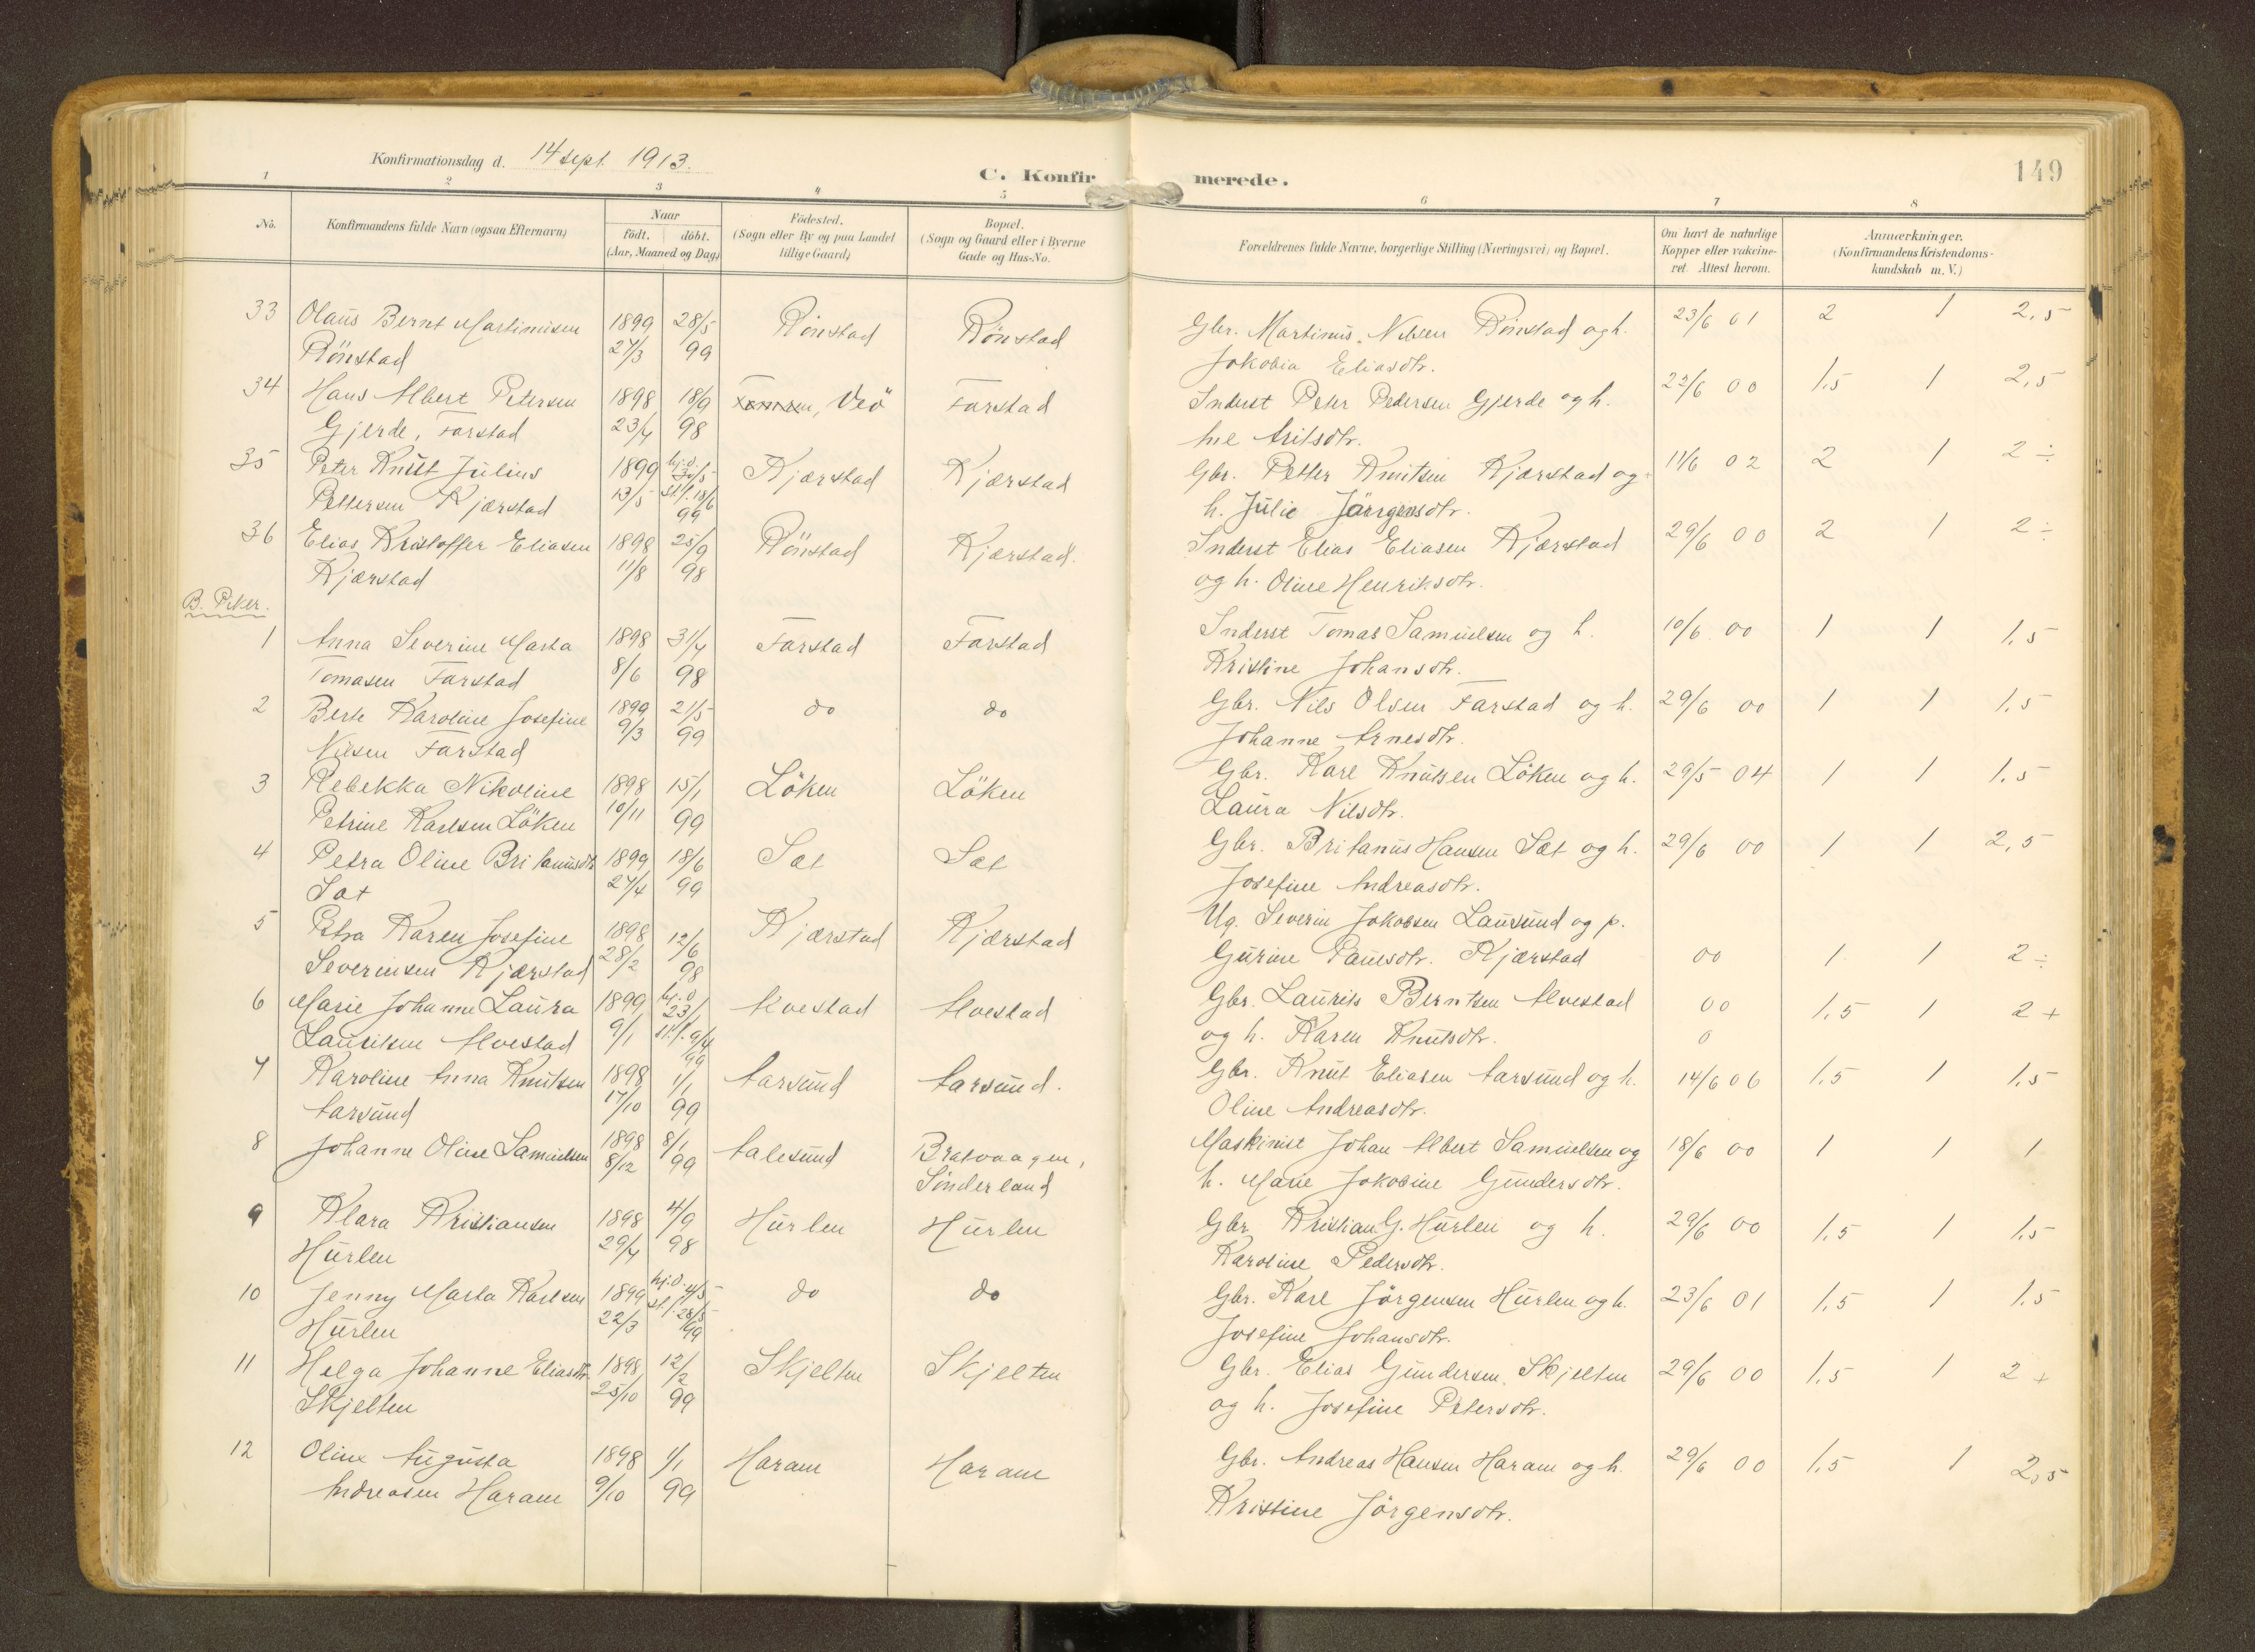 Konfirmationsdag d. 14 sept. 1913.
C. Konfirmerede.
149
1 2 3 4 5 6 7 8
No. Konfirmandens fulde Navn (ogsaa Efternavn) Naar født. døbt. (Aar, Maaned og Dag) Fødested. (Sogn eller By og paa Landet tillige Gaard) Bopæl. (Sogn og Gaard eller i Byerne Gade og Hus-No. Forældrenes fulde Navne, borgerlige Stilling (Næringsvei) og Bopæl. Om havt de naturlige Kopper eller vakcineret. Attest herom. Anmærkninger. (Konfirmandens Kristendomskundskab m. V.)
33 Olaus Bernt Martinusen 1899 28/5 Rönstad Rönstad Gbr. Martinus Nilsen Rönstad og h. 23/6 01 2 1 2,5
Rönstad 27/3 99 Jakobia Eliasdtr.
34 Hans Albert Petersen 1898 18/9 Veö Farstad Inderst Peter Pedersen Gjerde og h. 22/6 00 1,5 1 2,5
Gjerde, Farstad 23/7 98
35 Peter Knut Julius 1899 hj.d. 30/5 Kjærstad Kjærstad Gbr. Petter Knutsen Kjærstad og 11/6 02 2 1 2 ÷
Pettersen Kjærstad 13/5 st.f. 18/6 99 h. Julie Jörgensdtr.
36 Elias Kristoffer Eliasen 1898 25/9 Rönstad Kjærstad. Inderst Elias Eliasen Kjærstad 29/6 00 2 1 2 ÷
Kjærstad 11/8 98 og h. Oline Henriksdtr.
B. Piker.
1 Anna Severine Marta 1898 31/7 Farstad Farstad Inderst Tomas Samuelsen og h. 10/6 00 1 1 1,5
Tomasen Farstad 8/6 98 Kristine Johansdtr.
2 Berte Karoline Josefine 1899 21/5 do do Gbr. Nils Olsen Farstad og h. 29/6 00 1 1 1,5
Nilsen Farstad 9/3 99 Johanne Arnesdtr.
3 Rebekka Nikoline 1898 15/1 Löken Löken Gbr. Karl Knutsen Löken og h. 29/5 04 1 1 1,5
Petrine Karlsen Löken 10/11 99 Laura Nilsdtr.
4 Petra Oline Britanusdtr. 1899 18/6 Sæt Sæt Gbr. Britanus Hansen Sæt og h. 29/6 00 1 1 2,5
Sæt 27/4 99 Josefine Andreasdtr.
5 Petra Karen Josefine 1898 12/6 Kjærstad Kjærstad Ug. Severin Jakobsen Lausund og p.
Severinsen Kjærstad 28/2 98 Gurine Paulsdtr. Kjærstad 00 1 1 2 ÷
6 Marie Johanne Laura 1899 hj.d. 23/1 Alvestad Alvestad Gbr. Laurits Berntsen Alvestad 00 1,5 1 2 +
Lauritsen Alvestad 9/1 st.f. 9/4 99 og h. Karen Knutsdtr. 0
7 Karoline Anna Knutsen 1898 1/1 Aarsund Aarsund. Gbr. Knut Eliasen Aarsund og h. 14/6 06 1,5 1 1,5
Aarsund 17/10 99 Oline Andreasdtr.
8 Johanne Oline Samuelsen 1898 8/1 Aalesund Bratvaagen, Maskinist Johan Albert Samuelsen og 18/6 00 1 1 1
8/12 99 Sönderland h. Marie Jakobine Gundersdtr.
9 Klara Kristiansen 1898 4/9 Hurlen Hurlen Gbr. Kristian G. Hurlen og h. 29/6 00 1,5 1 1,5
Hurlen 29/7 98 Karoline Pedersdtr.
10 Jenny Marta Karlsen 1899 hj.d. 4/5 do do Gbr. Karl Jörgensen Hurlen og h. 23/6 01 1,5 1 1,5
Hurlen 22/3 st.f. 28/5 99 Josefine Johansdtr.
11 Helga Johanne Eliasdtr. 1898 12/2 Skjelten Skjelten Gbr. Elias Gundersen Skjelten 29/6 00 1,5 1 2 +
Skjelten 25/10 99 og h. Josefine Petersdtr.
12 Oline Augusta 1898 1/1 Haram Haram Gbr. Andreas Hansen Haram og h. 29/6 00 1,5 1 2,5
Andreasen Haram 9/10 99 Kristine Jörgensdtr.